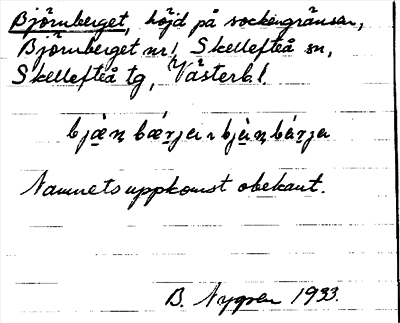 Björnberget, höjd på sockengränsen,
Björnberget nr 1, Skellefteå sn,
Skellefteå tg, Västerb. l.
bjæ̀ṇ bærja, bjàṇbárja
Namnets uppkomst obekant.
B. Nygren 1933.